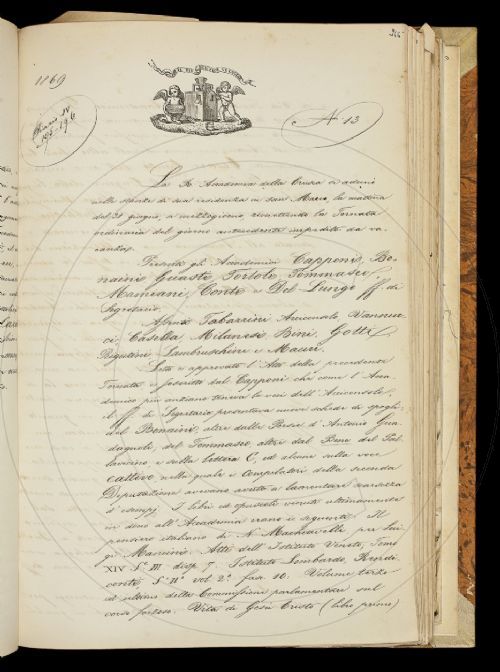 366
1869
N 13
La R. Accademia della Crusca si adunò
nelle stanze di sua residenza in San Marco, la mattina
del 30 giugno, a mezzogiorno, rimettendo la Tornata
ordinaria del giorno antecedente impedita da va-
canza.
Presenti gli Accademici Capponi, Bo-
naini, Guasti, Tortoli, Tommaseo,
Mamiani, Conti e Del Lungo ff. di
Segretario.
Assenti Tabarrini Arciconsolo, Vannuc-
ci, Casella, Milanesi, Bini, Gotti,
Rigutini, Lambruschini e Mauri.
Letto e approvato l'Atto della precedente
Tornata, e firmato dal Capponi che come l'Acca-
demico più anziano teneva le veci dell'Arciconsolo,
il ff. di Segretario presentava nuove schede di spogli:
del Bonaini, altre dalle Poesie d'Antonio Gua-
dagnoli, del Tommaseo, altre dal Bene del Pal-
lavicino, e sulla lettera C, ed alcune sulla voce
cattivo, nella quale i Compilatori della seconda
Deputazione avevano avuto a lamentare scarsezza
d'esempj. I libri ed opuscoli venuti ultimamente
in dono all'Accademia erano i seguenti. Il
pensiero italiano di N. Machiavelli per Lui-
gi Mancini. Atti dell'Istituto Veneto, Tomo
XIV S.e III disp. 7. Istituto Lombardo, Rendi-
conti, S. IIa vol. 2o fasc. 10. Volume terzo
ed ultimo della Commissione parlamentare sul
corso forzoso. Vita di Gesù Cristo (libro primo)